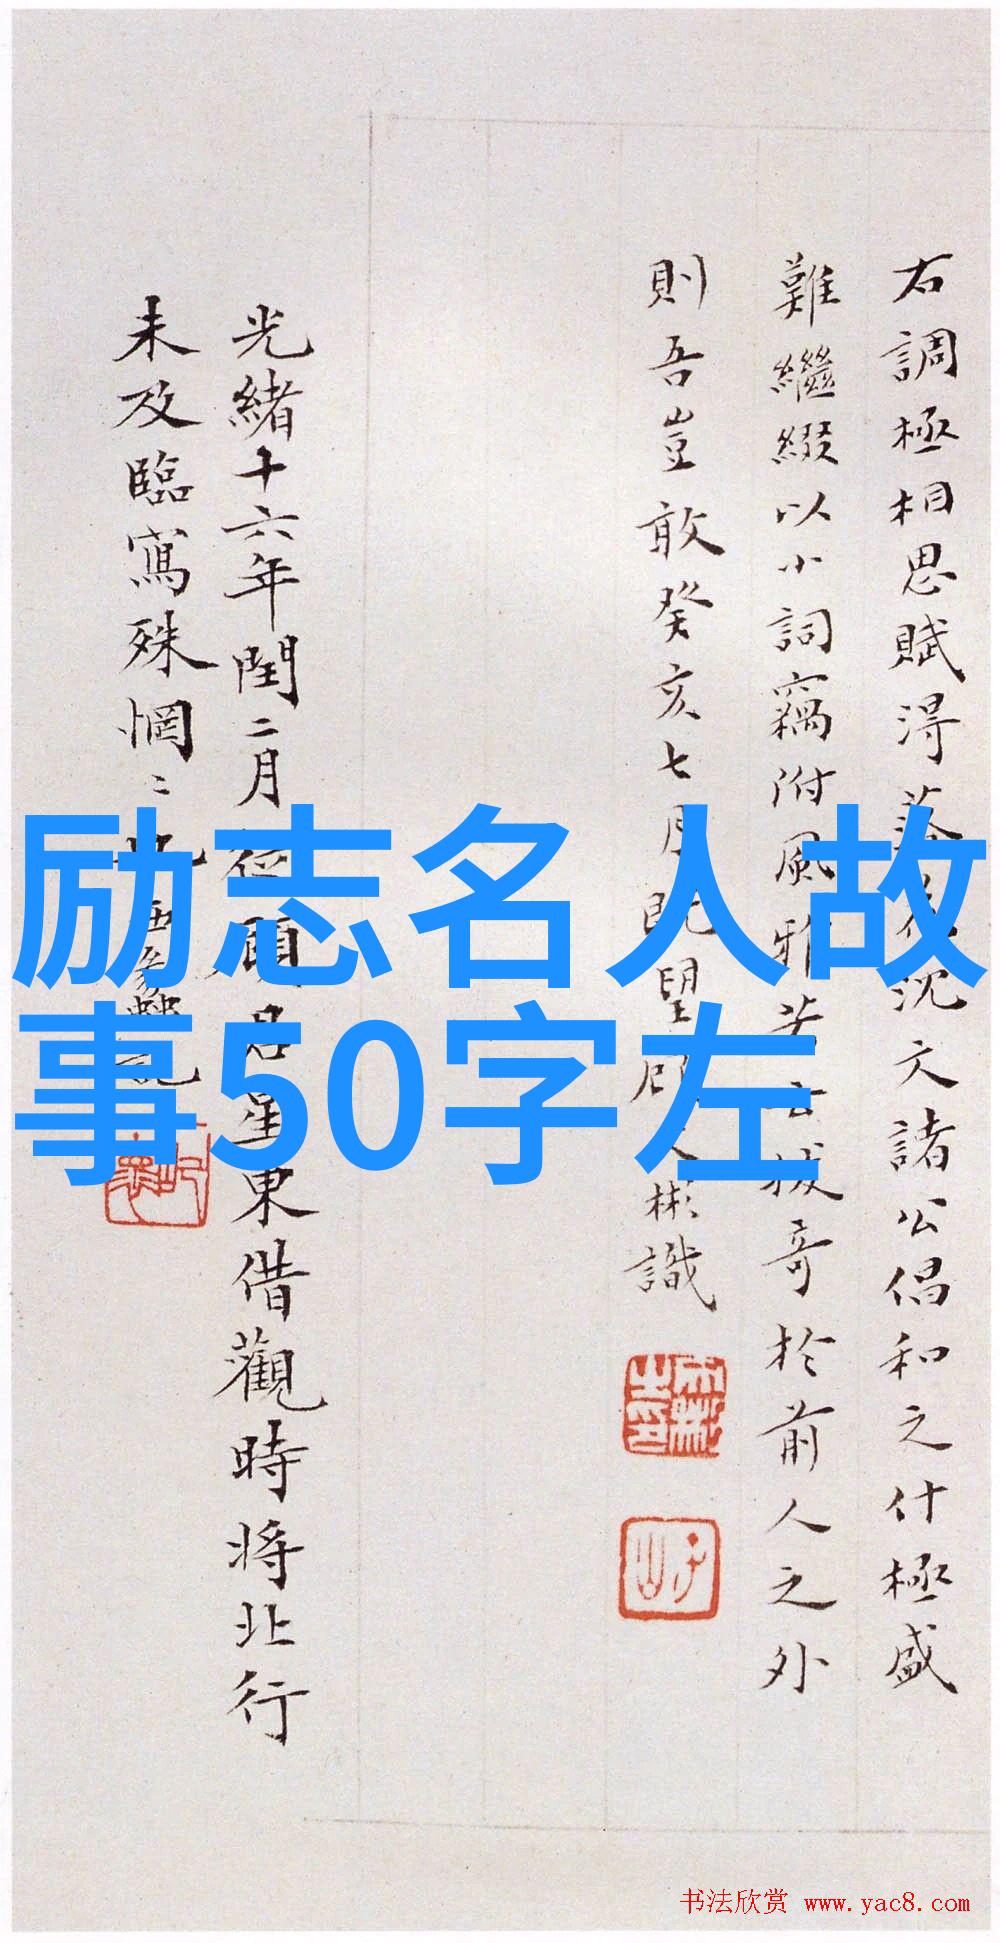 右調極相思賦得落花沈文諸公倡和之什極盛
難繼綴以小詞竊附風雅若云拔奇於前人之外
則吾豈敢癸亥七月既望顧文彬識
光緒十六年閏二月從顧君星東借觀時將北行
未及臨寫殊惘二也
励志名人故
事50字左
书法欣赏 www.yac8.com